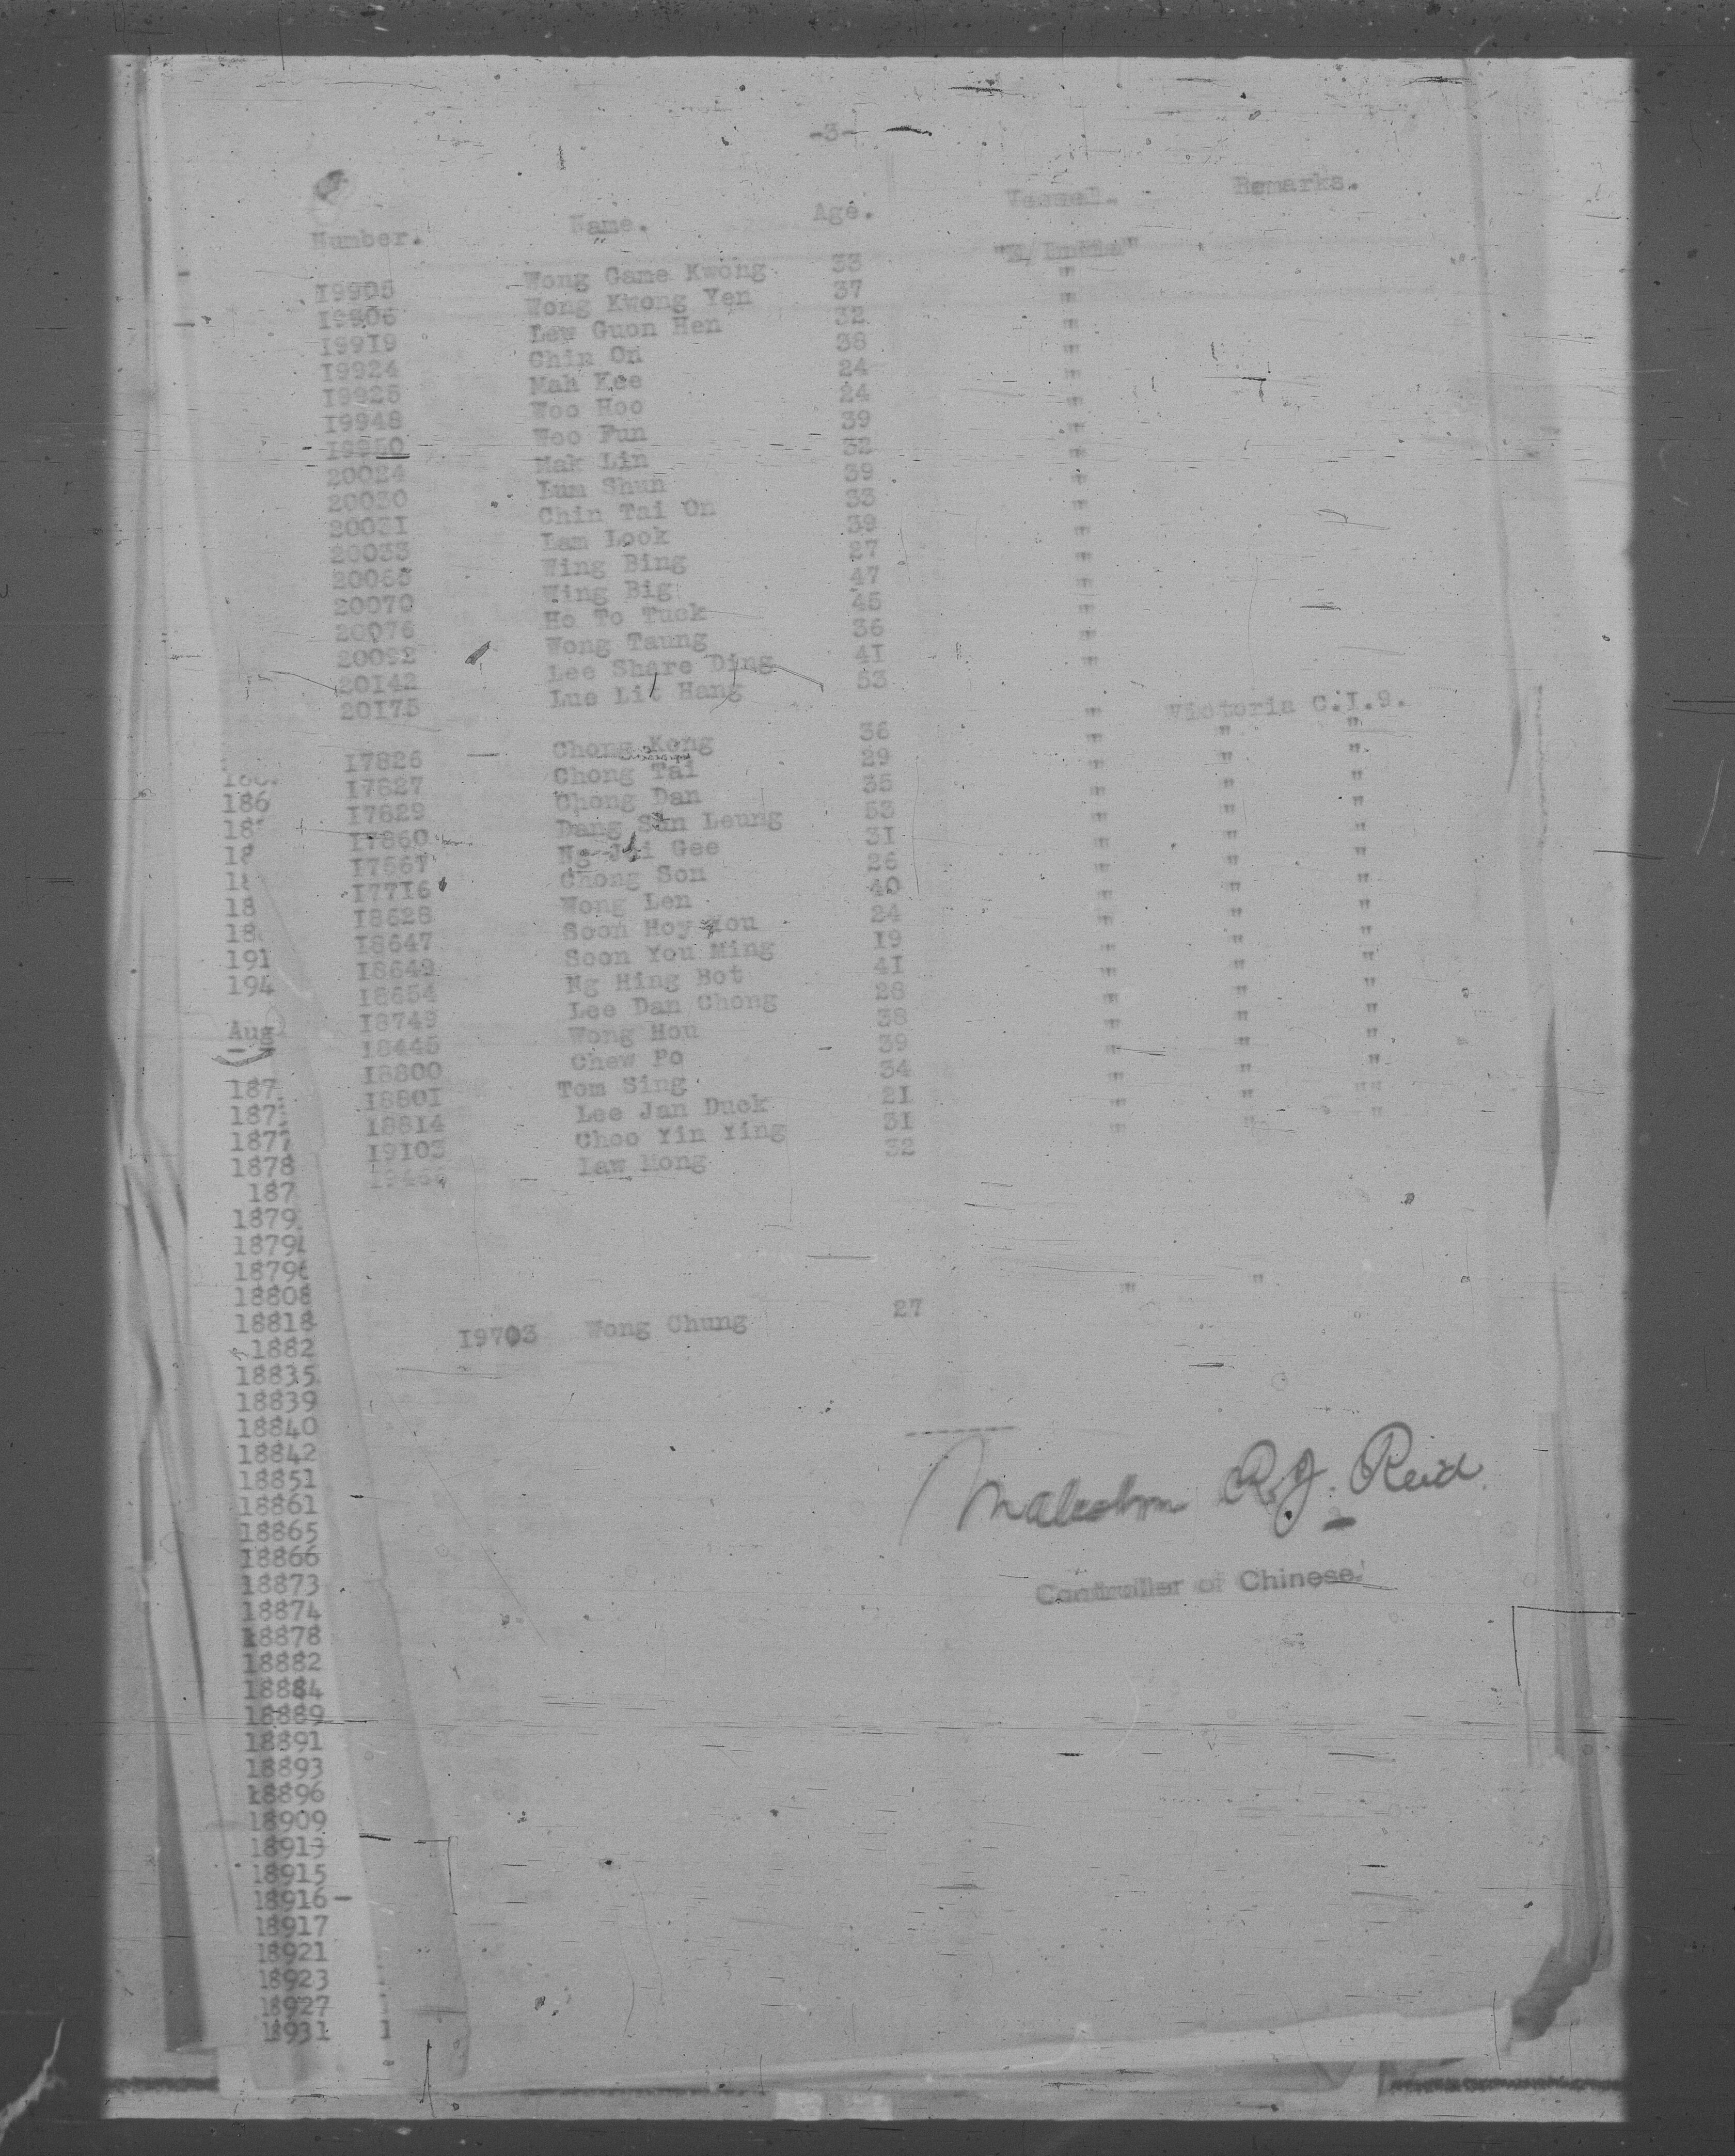 -3-
Number. Name. Age. Vessel. Remarks.
I9905 Wong Game Kwong 33
I9906 Wong Kwong Yen 37 "
I9919 Lew Guon Hen 32 "
I9924 Chin On 38 "
I9925 Mah Kee 24 "
I9948 Woo Hoo 24 "
I9950 Woo Fun 39 "
20024 Mak Lin 32 "
20030 Lum Shun 39 "
20031 Chin Tai On 33 "
20033 Lam Look 39 "
20068 Wing Bing 27 "
20070 Wing Big 47 "
20076 Ho To Tuck 45 "
20092 Wong Taung 36 "
20I42 Lee Share Ding 4I "
20I75 Lue Lit Hang 53 "
I7826 Chong Kong 36 " Victoria C.I.9.
I7827 Chong Tai 29 " " "
I7829 Chong Dan 35 " " "
I7860 Dang Sun Leung 53 " " "
I7567 Ng Jai Gee 3I " " "
I77I6 Chong Son 26 " " "
I8628 Wong Len 40 " " "
I8647 Soon Hoy You 24 " " "
I8649 Soon You Ming I9 " " "
I8654 Ng Hing Bot 4I " " "
I8749 Lee Dan Chong 28 " " "
I8445 Wong Hou 38 " " "
I8800 Chew Po 39 " " "
I880I Tom Sing 34 " " "
I88I4 Lee Jan Duck 2I " " "
I9I03 Choo Yin Ying 3I " " "
Law Mong 32 " " "
I9703 Wong Chung 27 " "
Malcolm R.J. Reid
Controller of Chinese.
186
18
18
18
18
191
194
Aug
187
187
1877
1878
187
1879
1879
1879
18808
18818
1882
18835
18839
18840
18842
18851
18861
18865
18866
18873
18874
18878
18882
18884
18889
18891
18893
18896
18909
18913
18915
18916-
18917
18921
18923
18927
18931